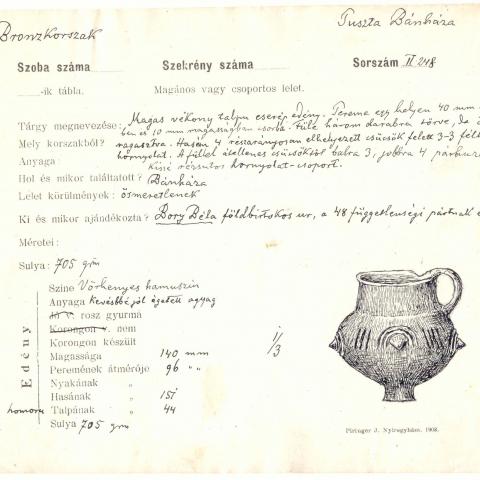 Bronzkorszak
Puszta Bánháza
Szoba száma
Szekrény száma
Sorszám II 248
-ik tábla.
Magános vagy csoportos lelet.
Tárgy megnevezése: Magas vékony talpu cserép edény. Pereme egy helyen 40 mm
ben és 10 mm magasságban csorba. Füle három darabra törve, de
Mely korszakból? ragasztva. Hasán 4 részarányosan elhelyezett csücsök felett 3-3 félkör
Anyaga hornyolat. A füllel átellenes csücsöktől balra 3, jobbra 4 párhuzamos
kissé rézsutos hornyolat-csoport.
Hol és mikor találtatott? Bánháza
Lelet körülmények: ösmeretlenek
Ki és mikor ajándékozta? Bory Béla földbirtokos ur, a 48 függetlenségi pártnak
Méretei:
Sulya: 705 grm
Edény
Szine Vörhenyes hamuszin
Anyaga kevésbbé jól égetett agyag
Jó v. rosz gyurma
Korongon v. nem
Korongon készült
Magassága 140 mm
Peremének átmérője 96 „ „
Nyakának „
Hasának „ 151
homorú Talpának „ 44
Sulya 705 grm
1/3
Piringer J. Nyiregyháza, 1908.